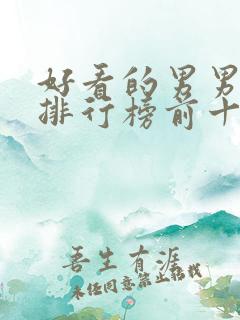 好看的男男
排行榜前十
吾生有涯
未经同意禁止转载